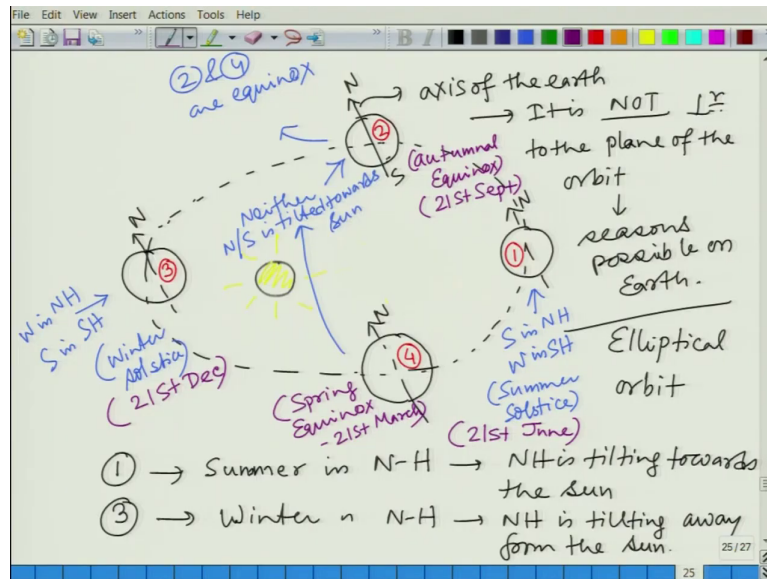 File Edit View Insert Actions Tools Help
B I
② & ④
are equinox
N
axis of the earth
→ It is NOT ⊥r
to the plane of the
orbit
↓
seasons
possible on
Earth.
②
S
(autumnal
Equinox)
(21st Sept)
Neither
N/S is tilted towards
Sun
N
①
N
③
W in NH
S in SH
(Winter
solstice)
(21st Dec)
N
④
(Spring
Equinox
- 21st March)
S in NH
W in SH
(Summer
Solstice)
(21st June)
Elliptical
orbit
① → Summer in N-H → NH is tilting towards
the sun
③ → Winter n N-H → NH is tilting away
form the sun.
25/27
25